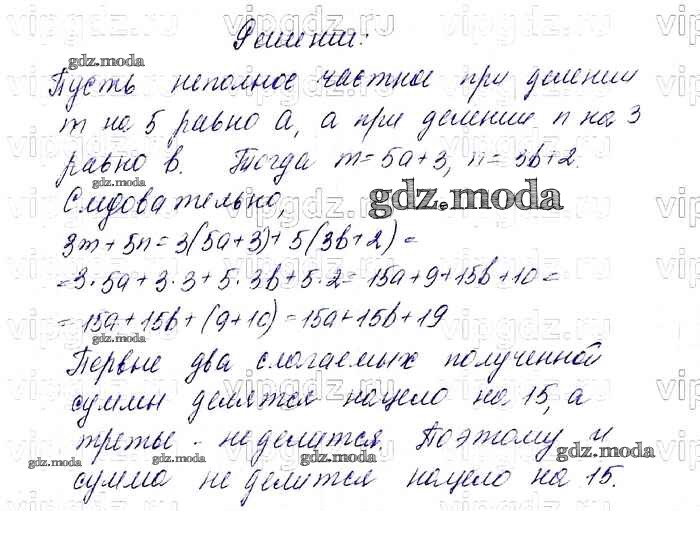 Решение:
Пусть неполное частное при делении
m на 5 равно a, а при делении n на 3
равно b. Тогда m=5a+3, n=3b+2.
Следовательно,
3m+5n=3(5a+3)+5(3b+2)=
=3·5a+3·3+5·3b+5·2=15a+9+15b+10=
=15a+15b+(9+10)=15a+15b+19
Первые два слагаемых полученной
суммы делятся нацело на 15, а
третье - не делится. Поэтому и
сумма не делится нацело на 15.
gdz.moda
vipgdz.ru